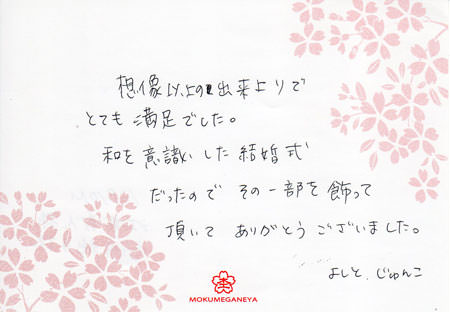 想像以上の出来上りで
とても満足でした。
和を意識した結婚式
だったので その一部を飾って
頂いて ありがとうございました。
よしと、じゅんこ
MOKUMEGANEYA